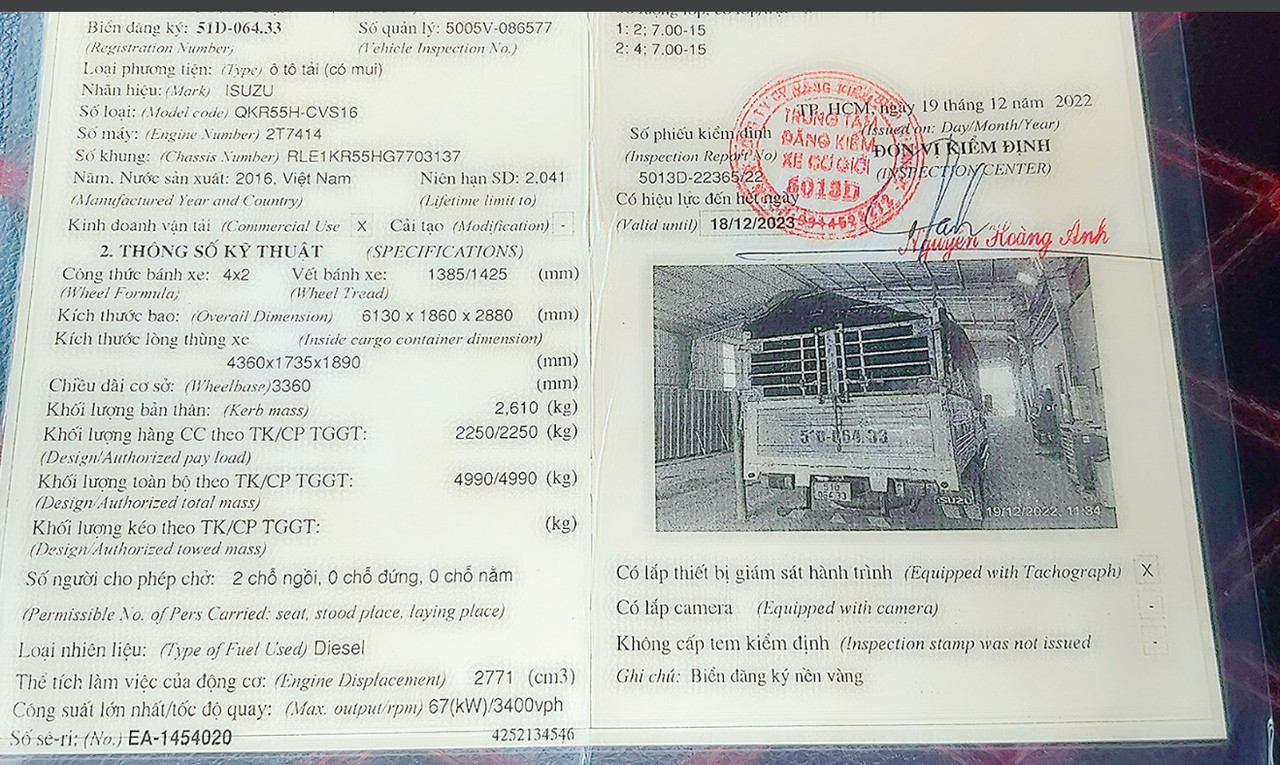 Biển đăng ký: 51D-064.33 Số quản lý: 5005V-086577
(Registration Number) (Vehicle Inspection No.)
Loại phương tiện: (Type) ô tô tải (có mui)
Nhãn hiệu: (Mark) ISUZU
Số loại: (Model code) QKR55H-CVS16
Số máy: (Engine Number) 2T7414
Số khung: (Chassis Number) RLE1KR55HG7703137
Năm, Nước sản xuất: 2016, Việt Nam Niên hạn SD: 2.041
(Manufactured Year and Country) (Lifetime limit to)
Kinh doanh vận tải (Commercial Use X Cải tạo (Modification) -
2. THÔNG SỐ KỸ THUẬT (SPECIFICATIONS)
Công thức bánh xe: 4x2 Vết bánh xe: 1385/1425 (mm)
(Wheel Formula) (Wheel Tread)
Kích thước bao: (Overall Dimension) 6130 x 1860 x 2880 (mm)
Kích thước lòng thùng xe (Inside cargo container dimension)
4360x1735x1890 (mm)
Chiều dài cơ sở: (Wheelbase)3360 (mm)
Khối lượng bản thân: (Kerb mass) 2,610 (kg)
Khối lượng hàng CC theo TK/CP TGGT: 2250/2250 (kg)
(Design/Authorized pay load)
Khối lượng toàn bộ theo TK/CP TGGT: 4990/4990 (kg)
(Design/Authorized total mass)
Khối lượng kéo theo TK/CP TGGT: (kg)
(Design/Authorized towed mass)
Số người cho phép chở: 2 chỗ ngồi, 0 chỗ đứng, 0 chỗ nằm
(Permissible No. of Pers Carried: seat, stood place, laying place)
Loại nhiên liệu: (Type of Fuel Used) Diesel
Thể tích làm việc của động cơ: (Engine Displacement) 2771 (cm3)
Công suất lớn nhất/tốc độ quay: (Max. output/rpm) 67(kW)/3400vph
Số sê-ri: (No.) EA-1454020 4252134546
1: 2; 7.00-15
2: 4; 7.00-15
TP. HCM, ngày 19 tháng 12 năm 2022
(Issued on: Day/Month/Year)
Số phiếu kiểm định ĐƠN VỊ KIỂM ĐỊNH
(Inspection Report No) (INSPECTION CENTER)
5013D-22365/22
TRUNG TÂM
ĐĂNG KIỂM
XE CƠ GIỚI
5013D
Có hiệu lực đến hết ngày
(Valid until) 18/12/2023
Nguyễn Hoàng Anh
51D-064.33
51D
064.33
ISUZU
19/12/2022, 11:34
Có lắp thiết bị giám sát hành trình (Equipped with Tachograph) X
Có lắp camera (Equipped with camera) -
Không cấp tem kiểm định (Inspection stamp was not issued -
Ghi chú: Biển đăng ký nền vàng